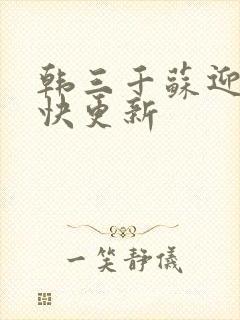 韩三千苏迎
快更新
一笑静儀